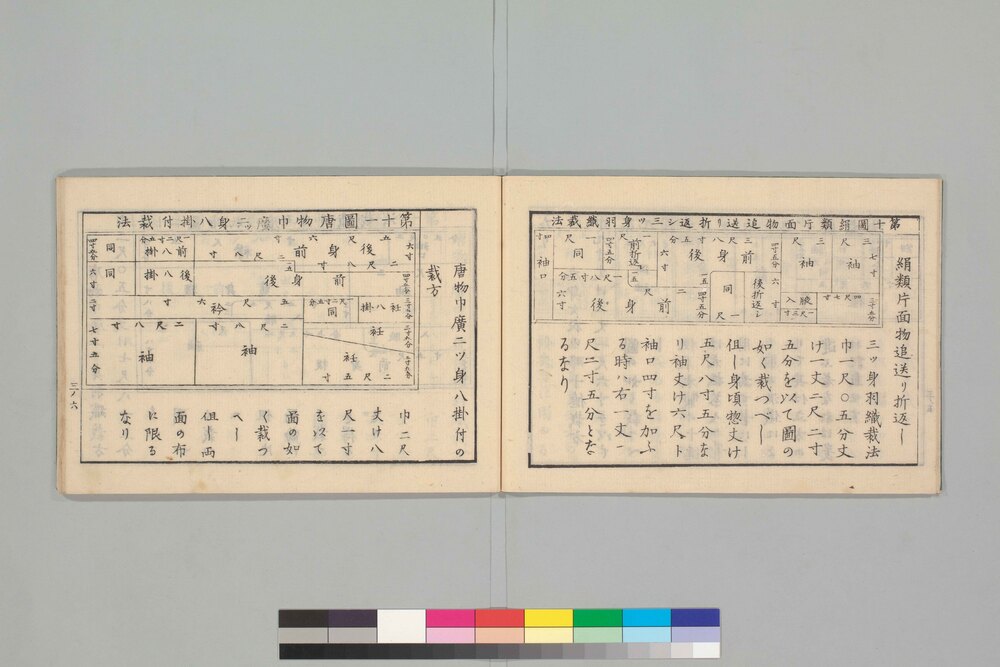 第十圖絹類片面物追送り折返シ三ッ身羽織裁法
絹類片面物追送り折返し
三ッ身羽織裁法
巾一尺〇五分丈
け一丈二尺二寸
五分を以て圖の
如く裁つべし
但し身頃惣丈け
五尺八寸五分な
リ袖丈け六尺ト
袖口四寸を加ふ
る時ハ右一丈二
尺二寸五分とな
るなり
三尺
袖
三尺
袖
七寸
三寸五分
四尺七寸
腋入
一尺三寸
四寸五分
六寸
後折返シ
三尺八寸五分
前
身
後
六寸
同
一尺
一五
四寸五分
二尺
前
身
後
前折返シ
四寸五分
一五
一尺
同
一尺八寸五分
六寸
四寸
袖口
第十一圖唐物巾廣二ッ身八掛付裁法
唐物巾廣二ッ身八掛付の
裁方
巾二尺
丈け八
尺一寸
を以て
圖の如
く裁つ
へし
但し両
面の布
に限る
なり
六寸
後
身
前
五尺六寸
二尺八寸
前
身
後
二尺八寸
一尺二寸五分
前八掛
後八掛
同
同
四寸五分
六寸
二寸
七寸五分
衽八掛
一尺二寸五分
同
衽
衽
二尺五寸
五尺六寸
衿
二尺八寸
袖
二尺八寸
袖
三ノ六